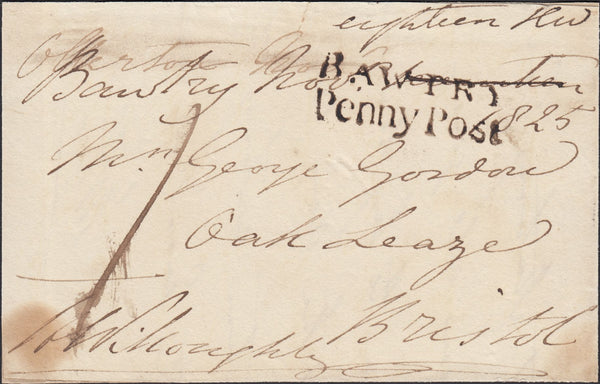 eighteen
Bawtry Nov.
BAWTRY
Penny Post
1825
Mr. George Gordon
Oak Leaze
Bristol
H Willoughby